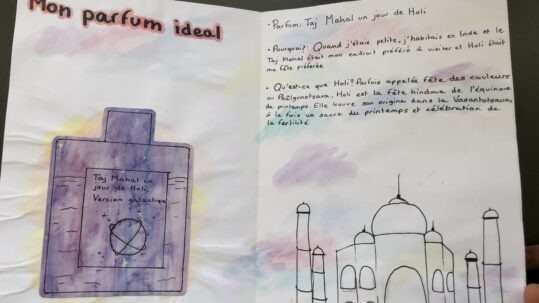 Mon parfum ideal
Taj Mahal un
jour de Holi
Version galactique
• Parfum: Taj Mahal un jour de Holi
• Pourquoi? Quand j'étais petite, j'habitais en Inde et le
Taj Mahal était mon endroit préféré à visiter et Holi était
ma fête préférée
• Qu'est-ce que Holi? Parfois appelée fête des couleurs
ou Phâlgunotsava, Holi est la fête hindoue de l'équinoxe
de printemps. Elle trouve son origine dans la Vasantotsava,
à la fois un sacre du printemps et célébration de
la fertilité